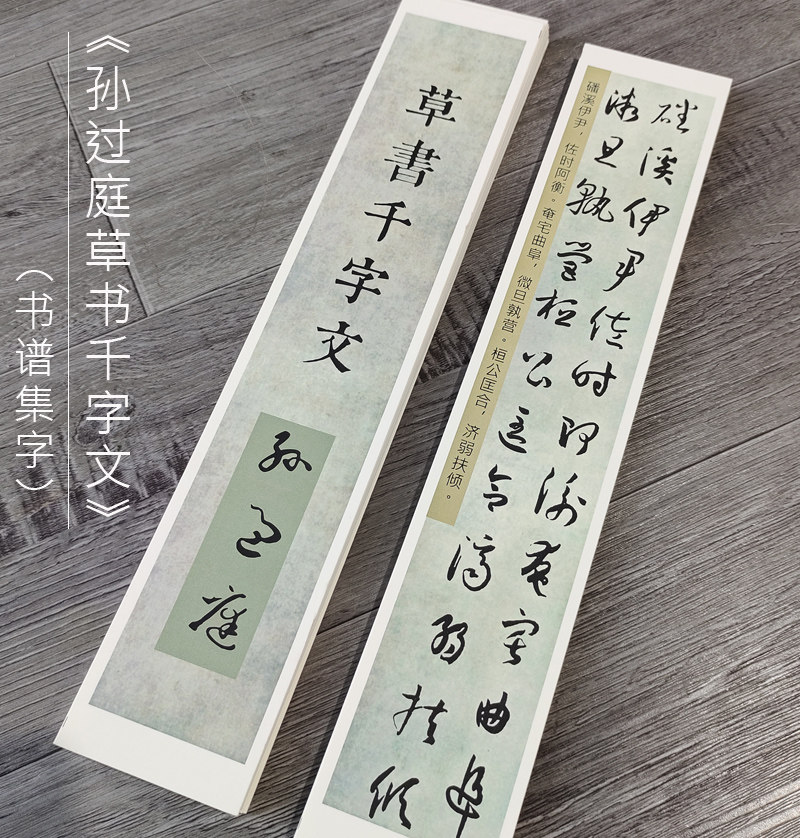 《孙过庭草书千字文》
（书谱集字）
草書千字文
孙过庭
磻溪伊尹佐时阿衡奄宅曲阜
微旦孰营桓公匡合济弱扶倾
磻溪伊尹，佐时阿衡。奄宅曲阜，微旦孰营。桓公匡合，济弱扶倾。